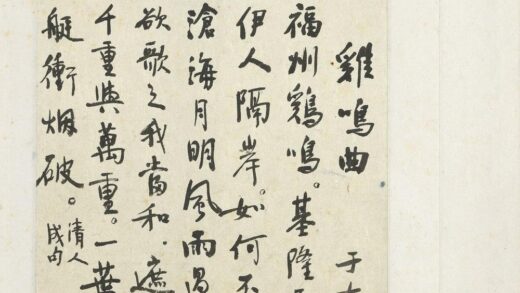 雞鳴曲 于
福州鷄鳴。基隆
伊人隔岸。如何不
滄海月明風雨過
欲歌之我當和。遮
千重與萬重。一葉
艇衝烟破。清人
成句